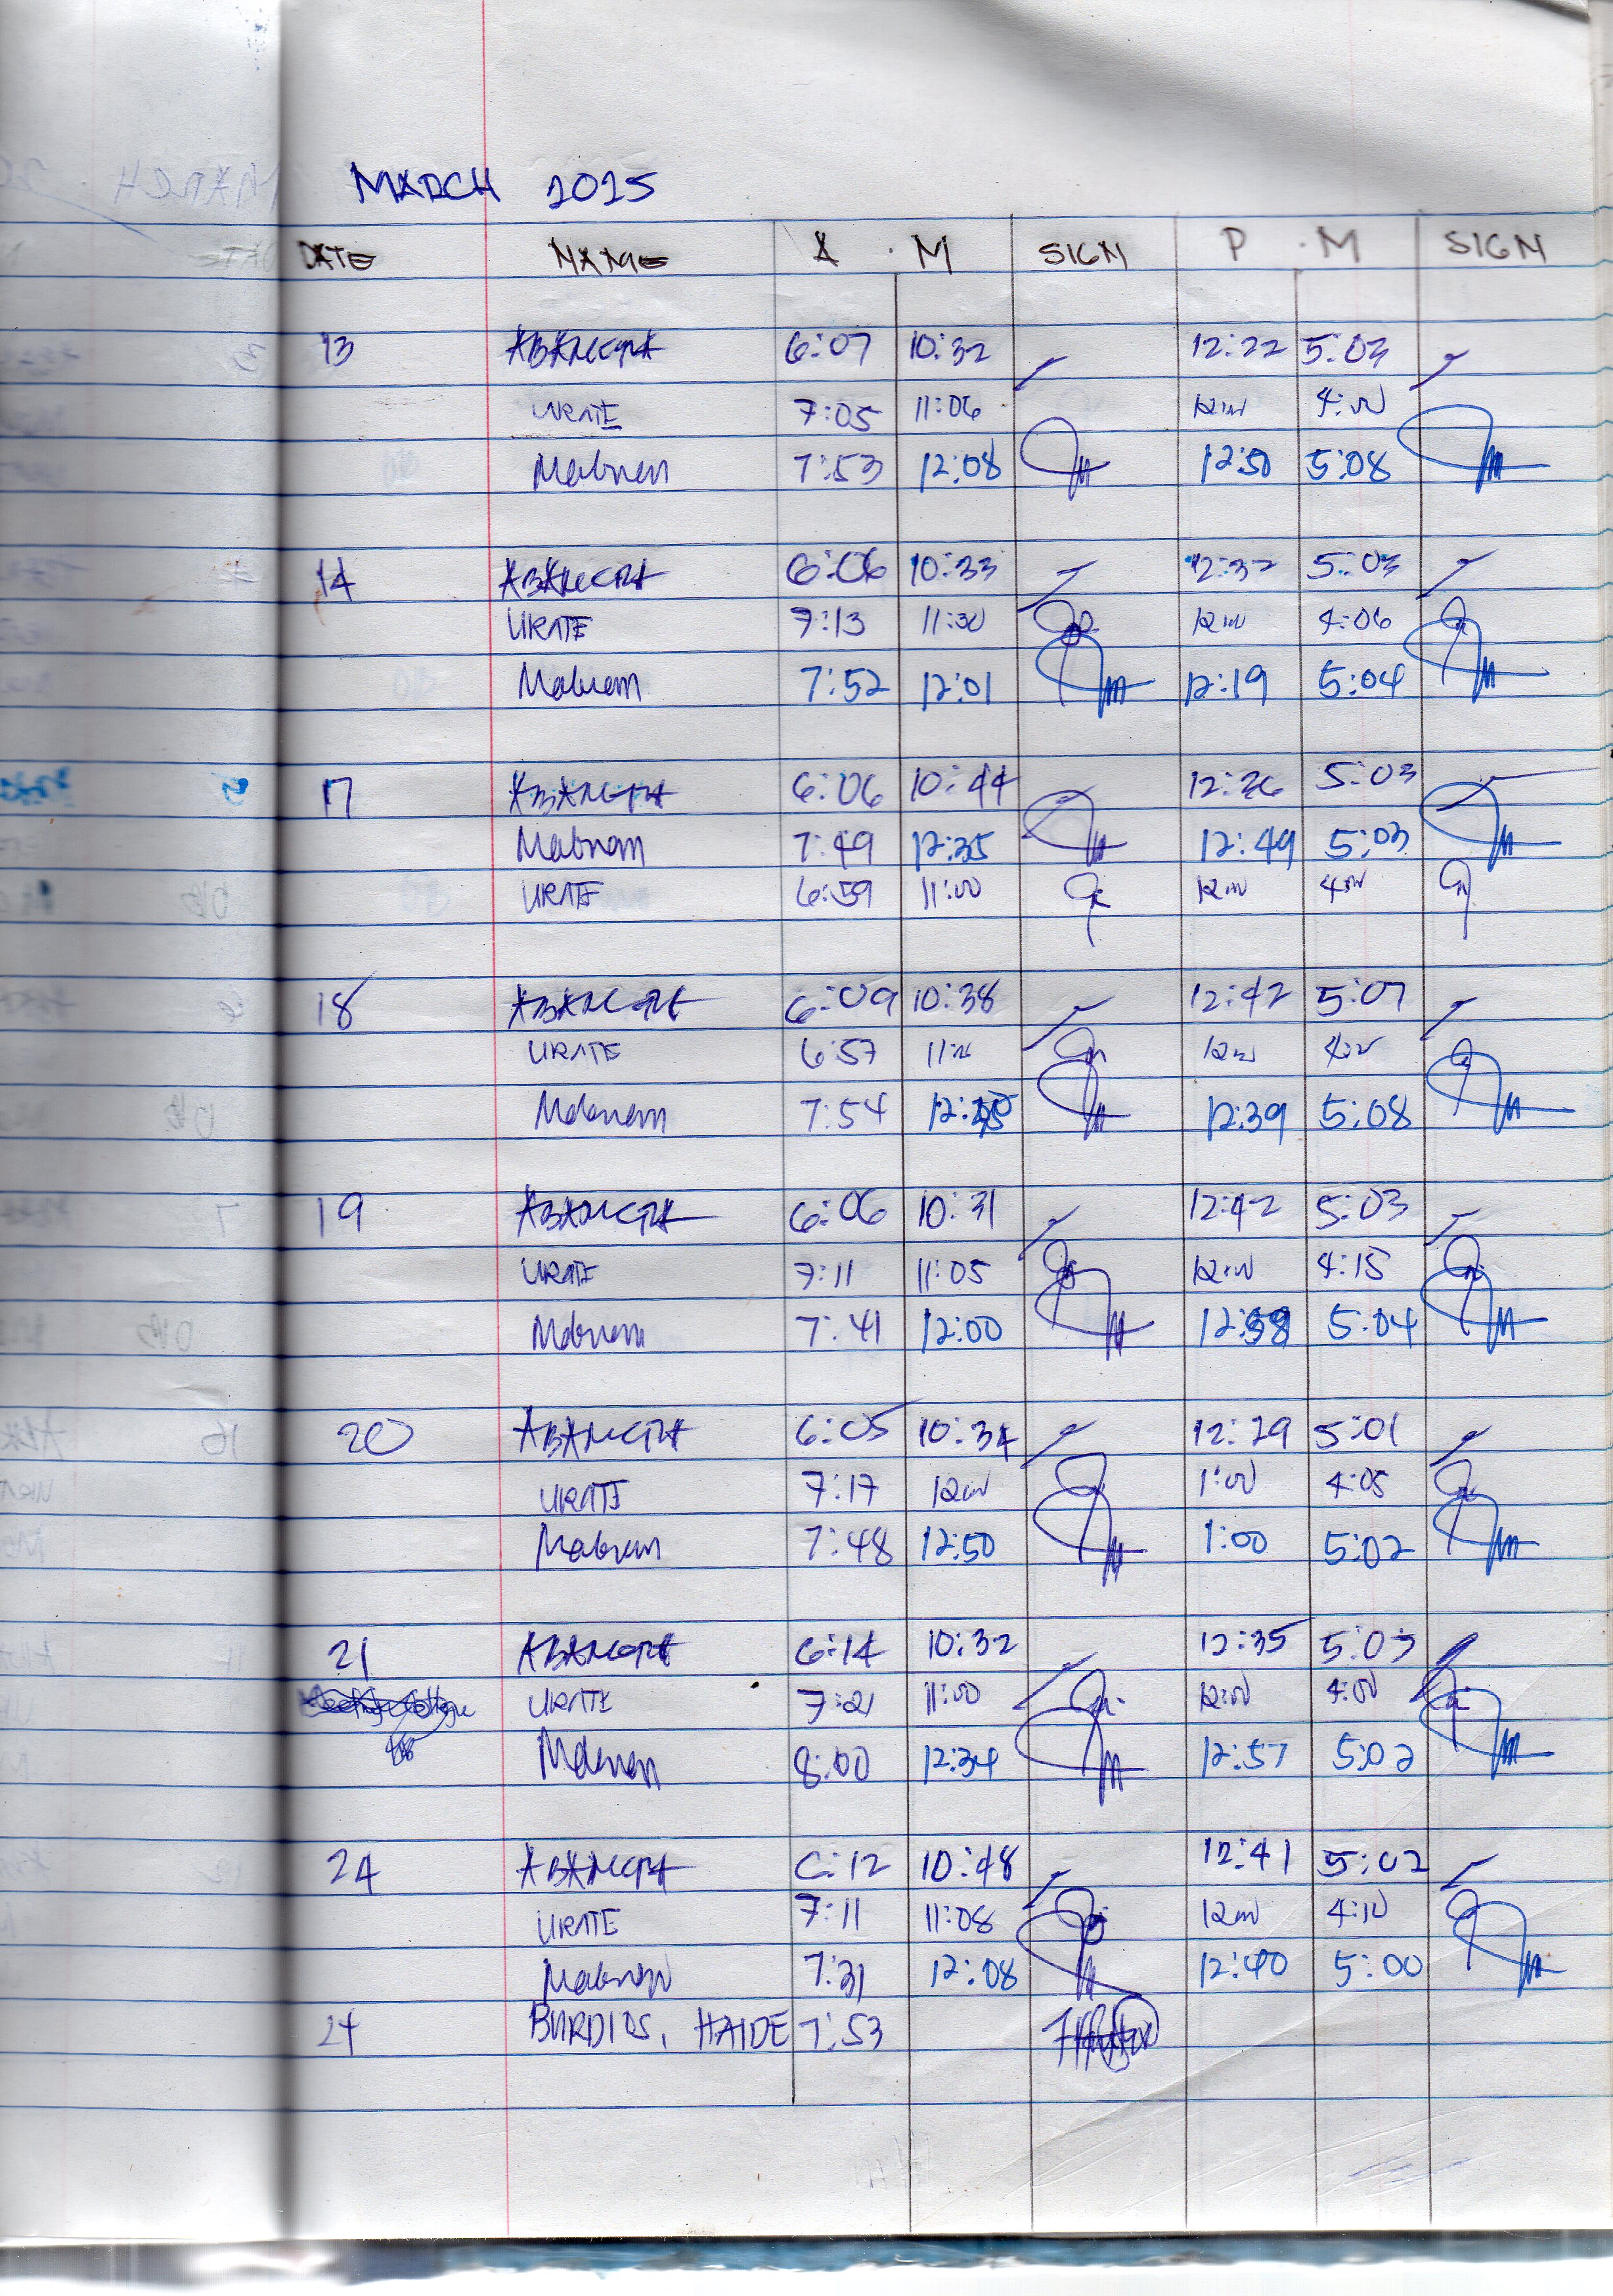 MARCH 2025
DATE NAME A . M SIGN P . M SIGN
13 ABANCTA 6:07 10:32 12:22 5:03
URATE 7:05 11:06 12:00 4:00
Mabnan 7:53 12:08 12:50 5:08
14 ABANCTA 6:06 10:33 12:32 5:03
URATE 7:13 11:30 12:00 4:06
Mabnan 7:52 12:01 12:19 5:04
17 ABANCTA 6:06 10:44 12:36 5:03
Mabnan 7:49 12:35 12:49 5:03
URATE 6:59 11:00 12:00 4:00
18 ABANCTA 6:09 10:38 12:42 5:07
URATE 6:57 12:00 4:00
Mabnan 7:54 12:39 5:08
19 ABANCTA 6:06 10:31 12:42 5:03
URATE 7:11 11:05 12:00 4:15
Mabnan 7:41 12:00 5:04
20 ABANCTA 6:05 10:34 12:29 5:01
URATE 7:17 12:00 1:00 4:05
Mabnan 7:48 12:50 1:00 5:02
21 ABANCTA 6:14 10:32 12:35 5:03
URATE 7:21 11:00 12:00 4:00
Mabnan 8:00 12:34 12:57 5:02
24 ABANCTA 6:12 10:48 12:41 5:02
URATE 7:11 11:08 12:00 4:10
Mabnan 7:31 12:08 12:40 5:00
24 BURDIOS, HAIDE 7:53